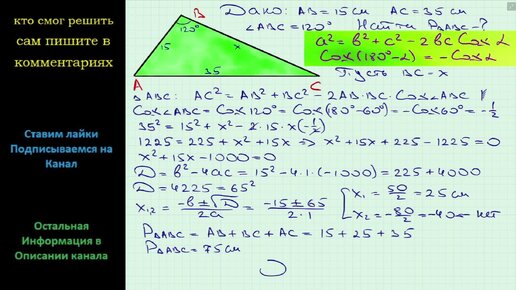 кто смог решить
сам пишите в
комментариях
Ставим лайки
Подписываемся на
Канал
Остальная
Информация в
Описании канала
B
120°
15
x
35
A
C
Дано: AB=15см AC=35см
∠ABC=120° Найти P△ABC-?
a²=b²+c²-2bc Cosα
Cos(180°-α)=-Cosα
Пусть BC-x
△ABC: AC²=AB²+BC²-2AB·BC·Cos∠ABC
Cos∠ABC=Cos120°=Cos(180°-60°)=-Cos60°=-1/2
35²=15²+x²-2·15·x(-1/2)
1225=225+x²+15x ⇒ x²+15x+225-1225=0
x²+15x-1000=0
D=b²-4ac=15²-4·1·(-1000)=225+4000
D=4225=65²
x₁,₂=(-b±√D)/2a=(-15±65)/2·1 [x₁=50/2=25см
x₂=-80/2=-40 - нет
P△ABC=AB+BC+AC=15+25+35
P△ABC=75см